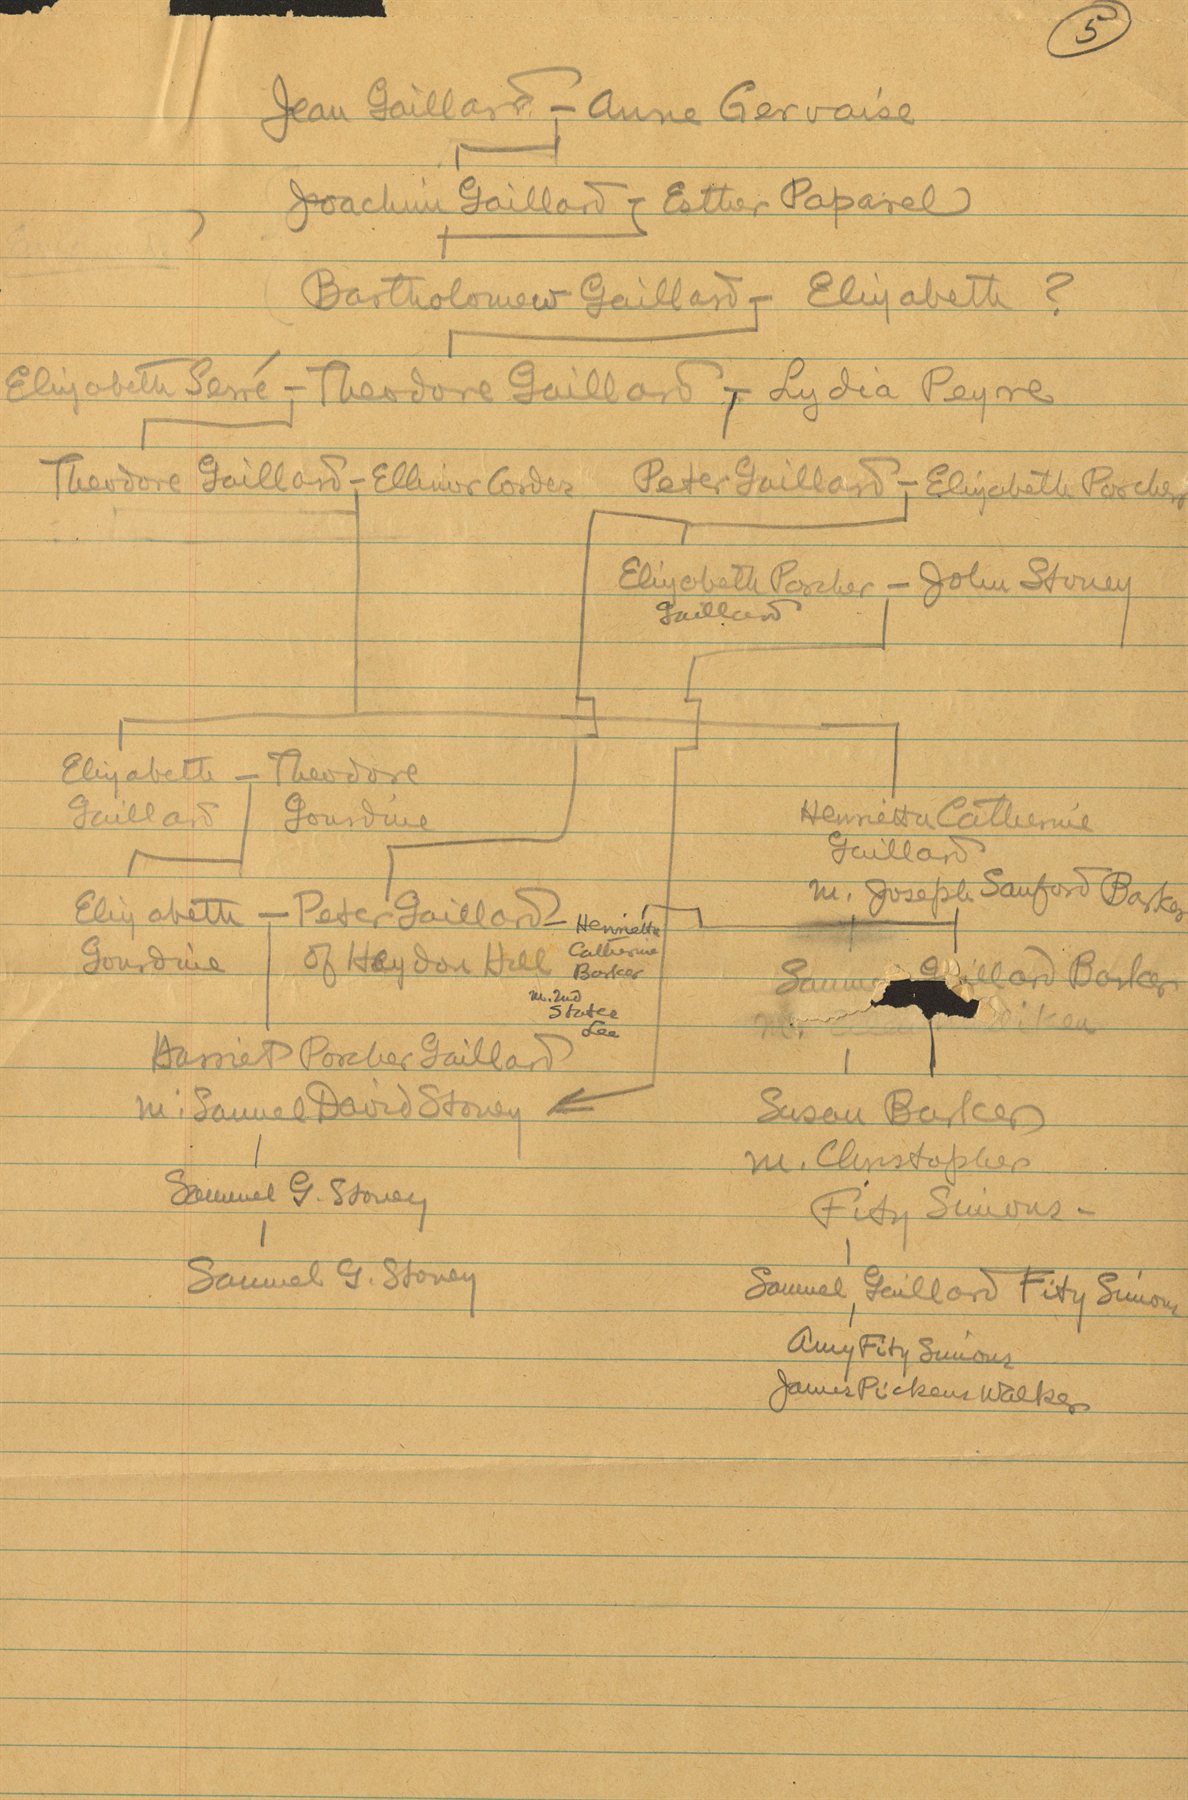 5
Jean Gaillard - Anne Gervaise
Joachim Gaillard - Esther Paparel
Bartholomew Gaillard - Elizabeth ?
Elizabeth Serré - Theodore Gaillard - Lydia Peyre
Theodore Gaillard - Ellinor Cordes Peter Gaillard - Elizabeth Porcher
Elizabeth Porcher - John Stoney
Gaillard
Elizabeth - Theodore
Gaillard Gourdine
Henrietta Catherine
Gaillard
m. Joseph Sanford Barker
Elizabeth - Peter Gaillard -
Gourdine of Haydon Hill
Henrietta
Catherine
Barker
m. 2nd
States
Lee
Gaillard Barker
m.
Harriet Porcher Gaillard
m. Samuel David Stoney
Samuel G. Stoney
Samuel G. Stoney
Susan Barker
m. Christopher
Fitz Simons -
Samuel Gaillard Fitz Simons
Amy Fitz Simons
James Pickens Walker